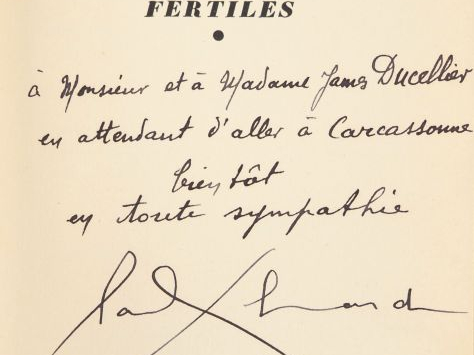 FERTILES
à Monsieur et à Madame James Ducellier
en attendant d'aller à Carcassonne
bientôt
en toute sympathie
Paul Eluard